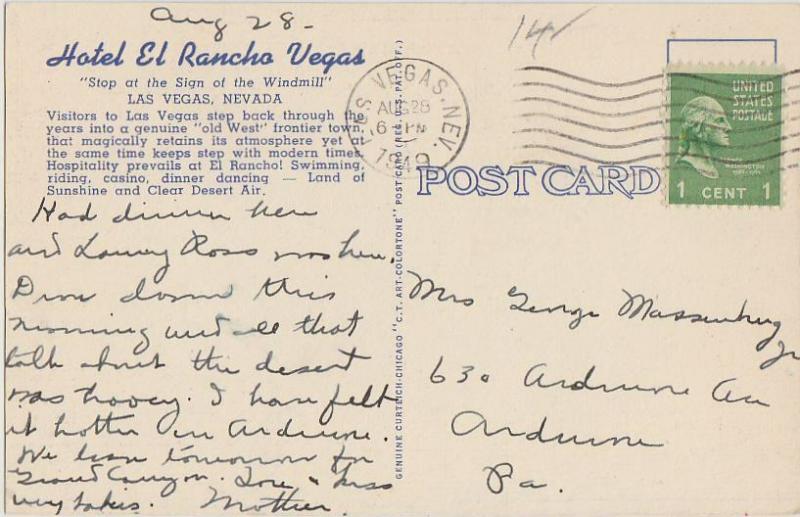 Aug 28-
14
Hotel El Rancho Vegas
"Stop at the Sign of the Windmill"
LAS VEGAS, NEVADA
Visitors to Las Vegas step back through the
years into a genuine "old West" frontier town,
that magically retains its atmosphere yet at
the same time keeps step with modern times.
Hospitality prevails at El Rancho! Swimming,
riding, casino, dinner dancing — Land of
Sunshine and Clear Desert Air.
Had dinner here
and Lanny Ross was here.
Drove down this
morning and all that
talk about the desert
was hooey. I have felt
it hotter in Ardmore.
We leave tomorrow for
Grand Canyon. Love & kiss
my babies. Mother.
GENUINE CURTEICH-CHICAGO "C.T. ART-COLORTONE" POST CARD (REG. U.S. PAT. OFF.)
LAS VEGAS, NEV.
AUG 28
6 PM
1949
POST CARD
UNITED
STATES
POSTAGE
WASHINGTON
1 CENT 1
Mrs George Massenburg
Jr
630 Ardmore Ave
Ardmore
Pa.